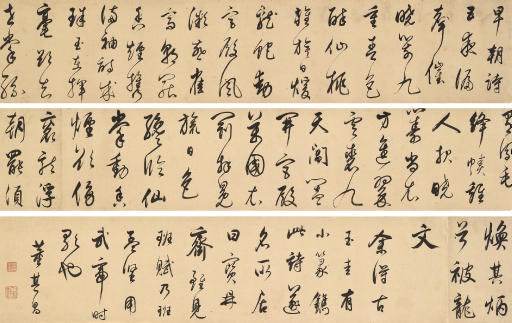 早朝詩
五夜漏
聲催
曉箭九
重春色
醉仙桃
旌旗日煖
龍蛇動
宮殿風
微燕雀
高朝罷
香煙攜
滿袖詩成
珠玉在揮
毫欲知
世掌絲
有鳳毛
絳幘雞
人報曉
籌尚衣
方進翠
雲裘九
天閶闔
開宮殿
萬國衣
冠拜冕
旒日色
纔臨仙
掌動香
煙欲傍
袞龍浮
朝罷須
煥其炳
兮被龍
文
余得古
玉有
小篆鐫
此詩遂
名所居
曰寶鼎
齋見
班賦乃班
孟堅用
武事時
歌也
董其昌